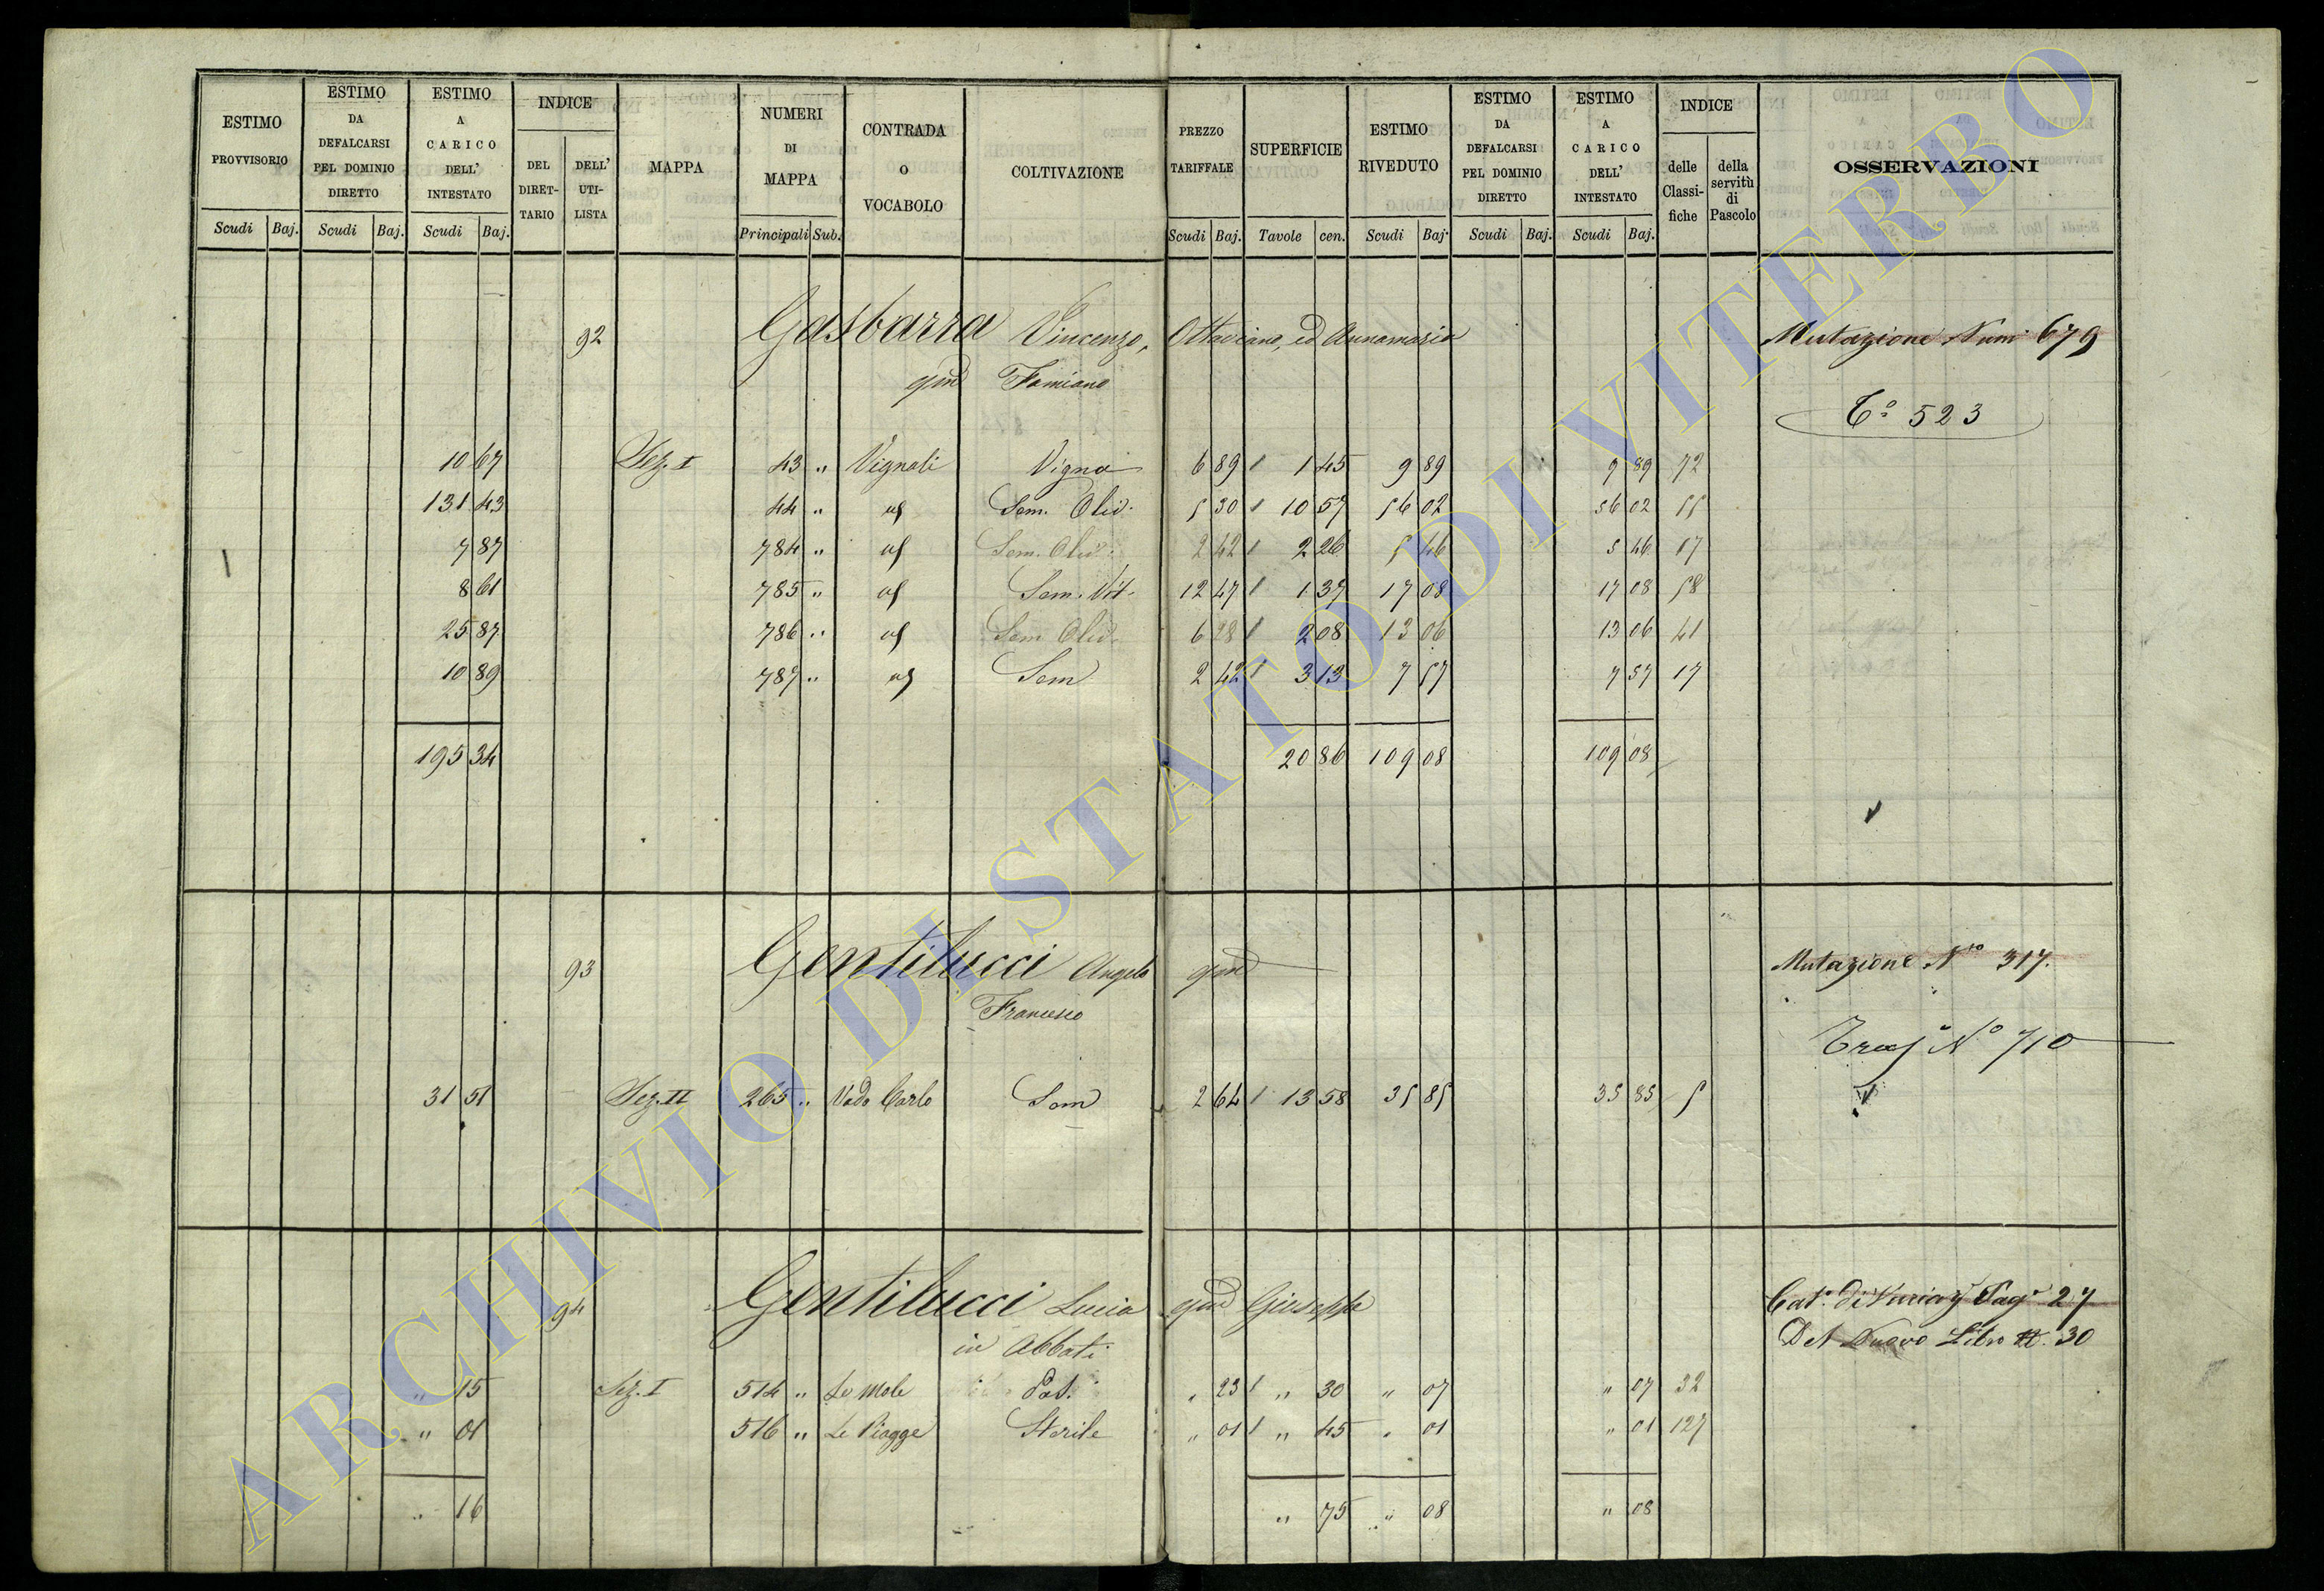 ESTIMO PROVVISORIO
ESTIMO DA DEFALCARSI PEL DOMINIO DIRETTO
ESTIMO A CARICO DELL' INTESTATO
INDICE
DEL DIRET- TARIO
DELL' UTI- LISTA
MAPPA
NUMERI DI MAPPA
CONTRADA O VOCABOLO
COLTIVAZIONE
PREZZO TARIFFALE
SUPERFICIE
ESTIMO RIVEDUTO
ESTIMO DA DEFALCARSI PEL DOMINIO DIRETTO
ESTIMO A CARICO DELL' INTESTATO
INDICE
delle Classi- fiche
della servitù di Pascolo
OSSERVAZIONI
Scudi Baj. Scudi Baj. Scudi Baj. Principali Sub. Scudi Baj. Tavole cen. Scudi Baj. Scudi Baj. Scudi Baj.
92 Gasbarra Vincenzo, Ottaviano, ed Annamaria Mutazione Num 679
qm Famiano
T.º 523
10 67 Sez. I 43 " Vignali Vigna 6 89 1 45 9 89 9 89 72
131 43 44 " " Sem. Oliv. 5 30 10 57 56 02 56 02 55
7 87 784 " " Sem. Oliv. 2 42 2 26 5 46 5 46 17
8 61 785 " " Sem. Vit. 12 47 1 37 17 08 17 08 58
25 87 786 " " Sem. Oliv. 6 28 2 08 13 06 13 06 41
10 89 787 " " Sem 2 42 3 13 7 57 7 57 17
195 34 20 86 109 08 109 08
93 Gentilucci Angelo qm Mutazione Nro 317.
Francesco
Tras. Nº 710
31 51 Sez. II 265 " Vado Carlo Sem 2 64 13 58 35 85 35 85 5
94 Gentilucci Lucia qm Giuseppe Cat. di Pag. 27
in Abbati Del Nuovo Libro 30
" 15 Sez. I 514 " Le Mole Pas. " 23 " 30 " 07 " 07 32
" 01 516 " Le Piagge Sterile " 01 " 45 " 01 " 01 127
" 16 " 75 " 08 " 08
ARCHIVIO DI STATO DI VITERBO